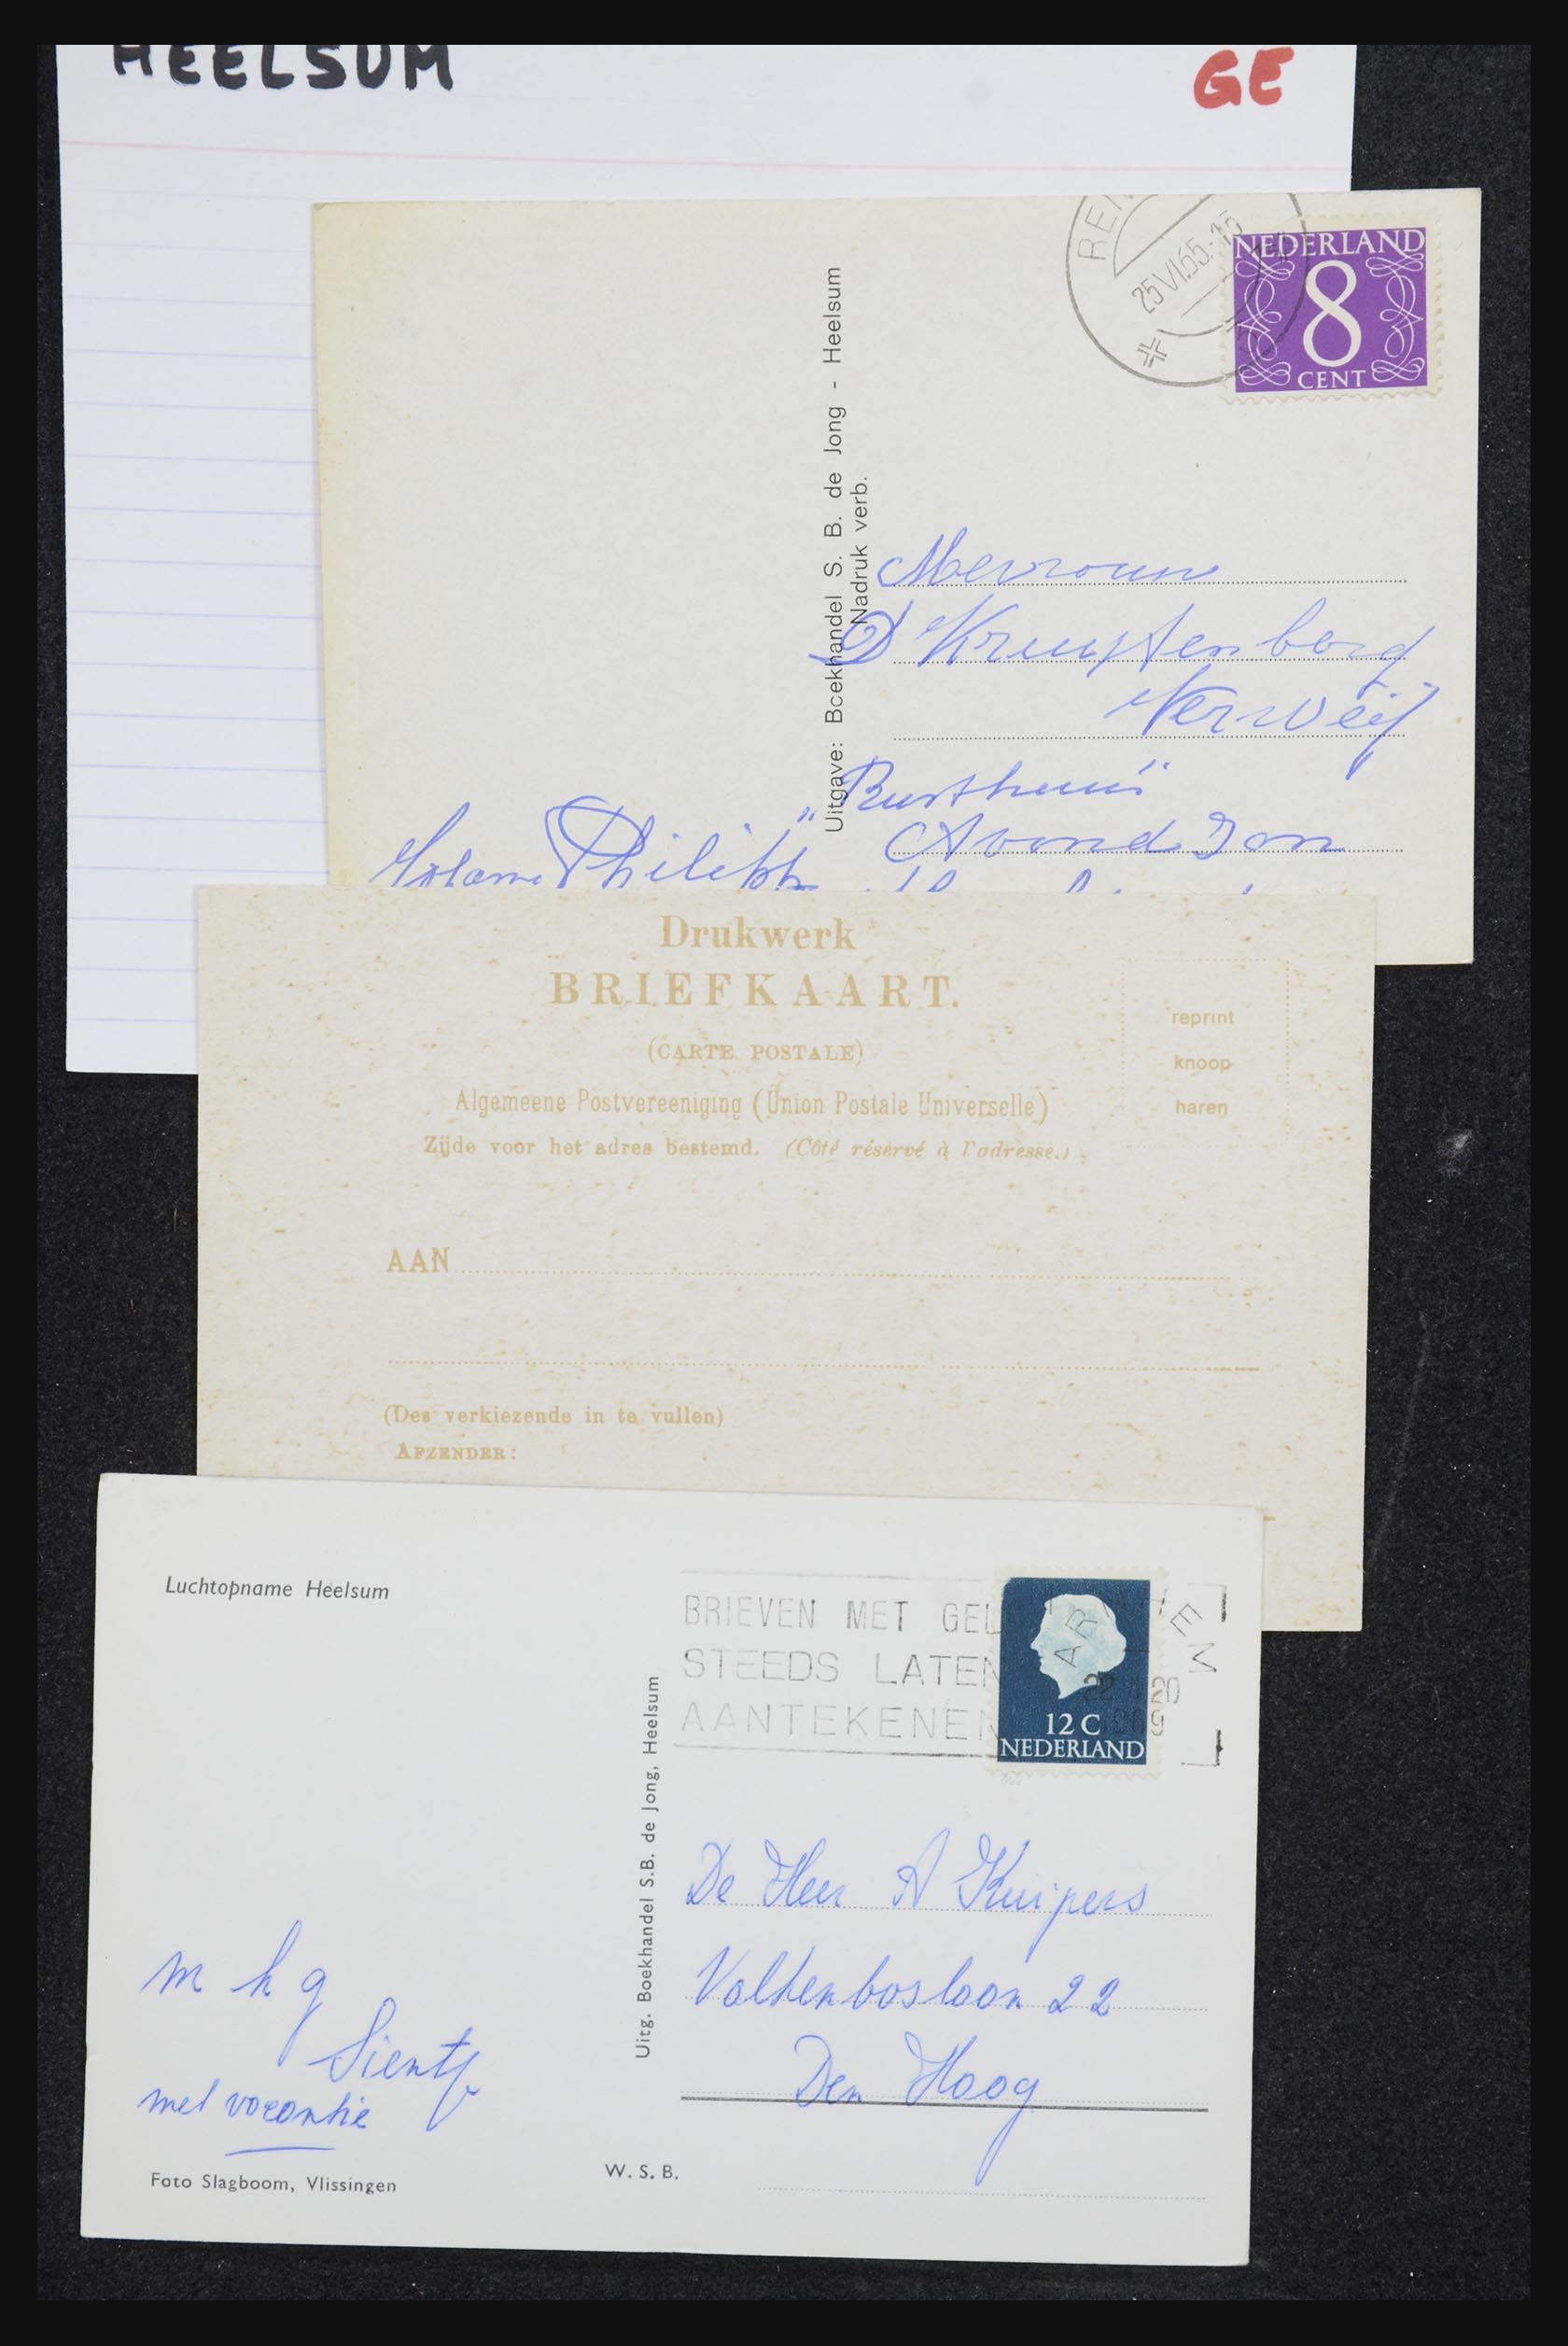 HEELSUM
GE
25 VI.65.-15
NEDERLAND
8
CENT
Uitgave: Boekhandel S. B. de Jong - Heelsum
Nadruk verb.
Mevrouw
D Kruystenberg
Verweij
"Rusthuis"
Avondzon
Drukwerk
BRIEFKAART.
(CARTE POSTALE)
Algemeene Postvereeniging (Union Postale Universelle)
Zijde voor het adres bestemd. (Côté réservé à l'adresse.)
reprint
knoop
haren
AAN
(Des verkiezende in te vullen)
AFZENDER:
Luchtopname Heelsum
BRIEVEN MET GEL
STEEDS LATEN
AANTEKENEN
12 C
NEDERLAND
Uitg. Boekhandel S.B. de Jong, Heelsum
De Heer A Kuipers
Valkenboslaan 22
Den Haag
m h g
Sientje
met vacantie
Foto Slagboom, Vlissingen
W. S. B.